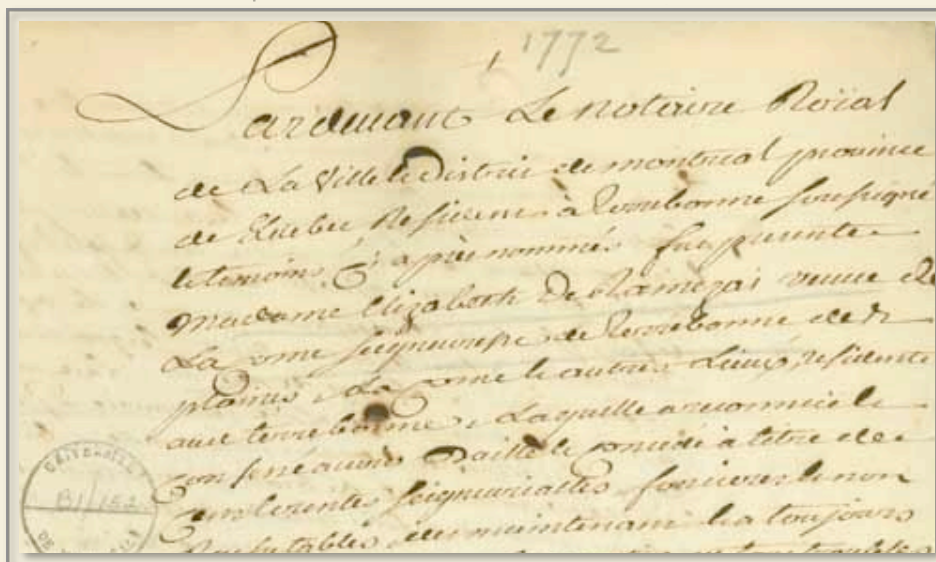 1772
Pardevant Le notaire Roïial
de La Ville & District de montreal province
de Quebec Resident à Terrebonne soussigné
& temoins cy après nommés fut presente
Madame Elizabeth De Ramezai veuve de
La Corne seigneuresse de Terrebonne de
plaines, La Corne & autres Lieux, residente
aud terrebonne, Laquelle a reconnu &
confessé avoir Baillé & concedé à titre de
Cens & rentes seigneurialles foncieres & non
Rachetables, des maintenant & a toujours
UNIVERSITÉ
B1/152
DE